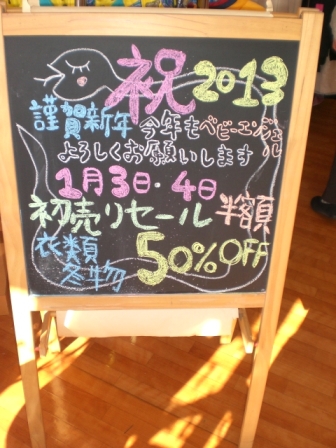 祝2013
謹賀新年 今年もベビーエンジェル
よろしくお願いします
1月3日・4日
初売りセール 半額
衣類 50%OFF
冬物